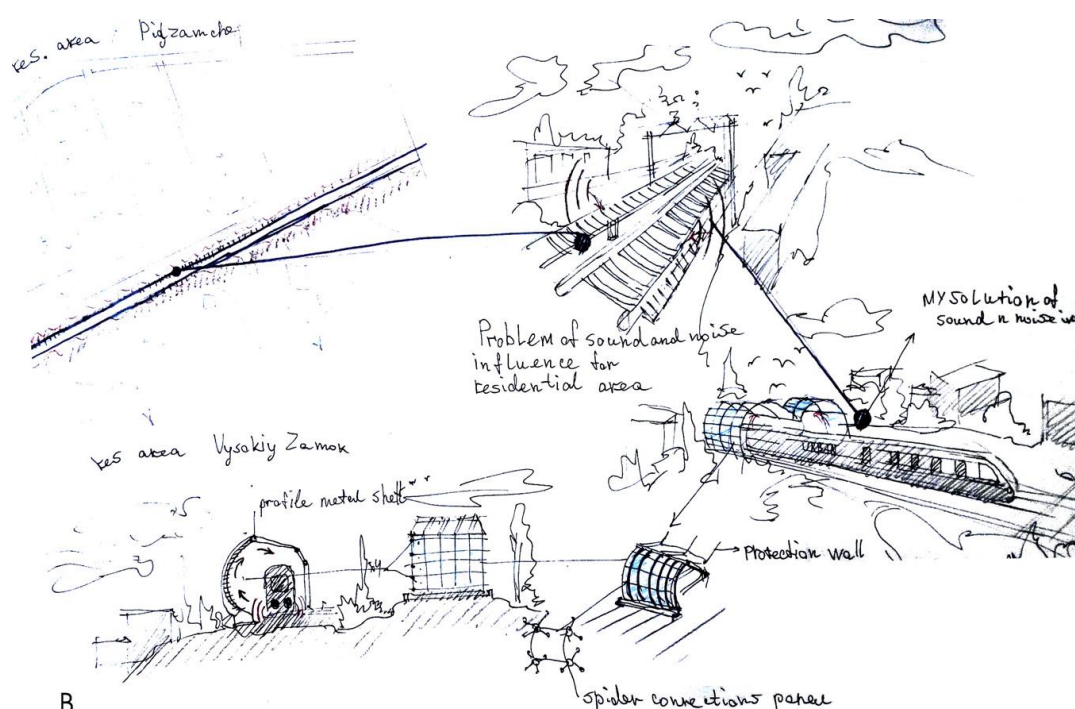 res. area Pidzamche
Problem of sound and noise
influence for
residential area
MY solution of
sound n noise in
URBAN
res area Vysokiy Zamok
profile metal shell
Protection wall
spider connections panel
B